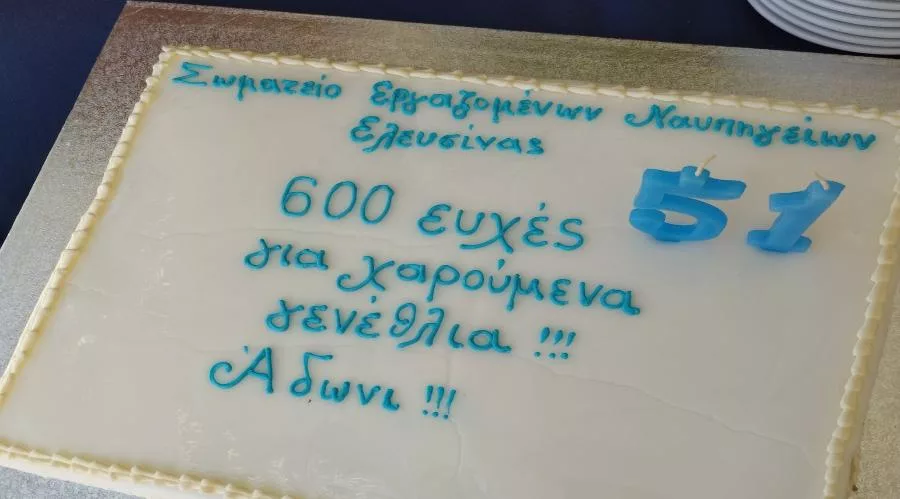 Σωματείο Εργαζομένων Ναυπηγείων
Ελευσίνας
51
600 ευχές
για χαρούμενα
γενέθλια !!!
Άδωνι !!!